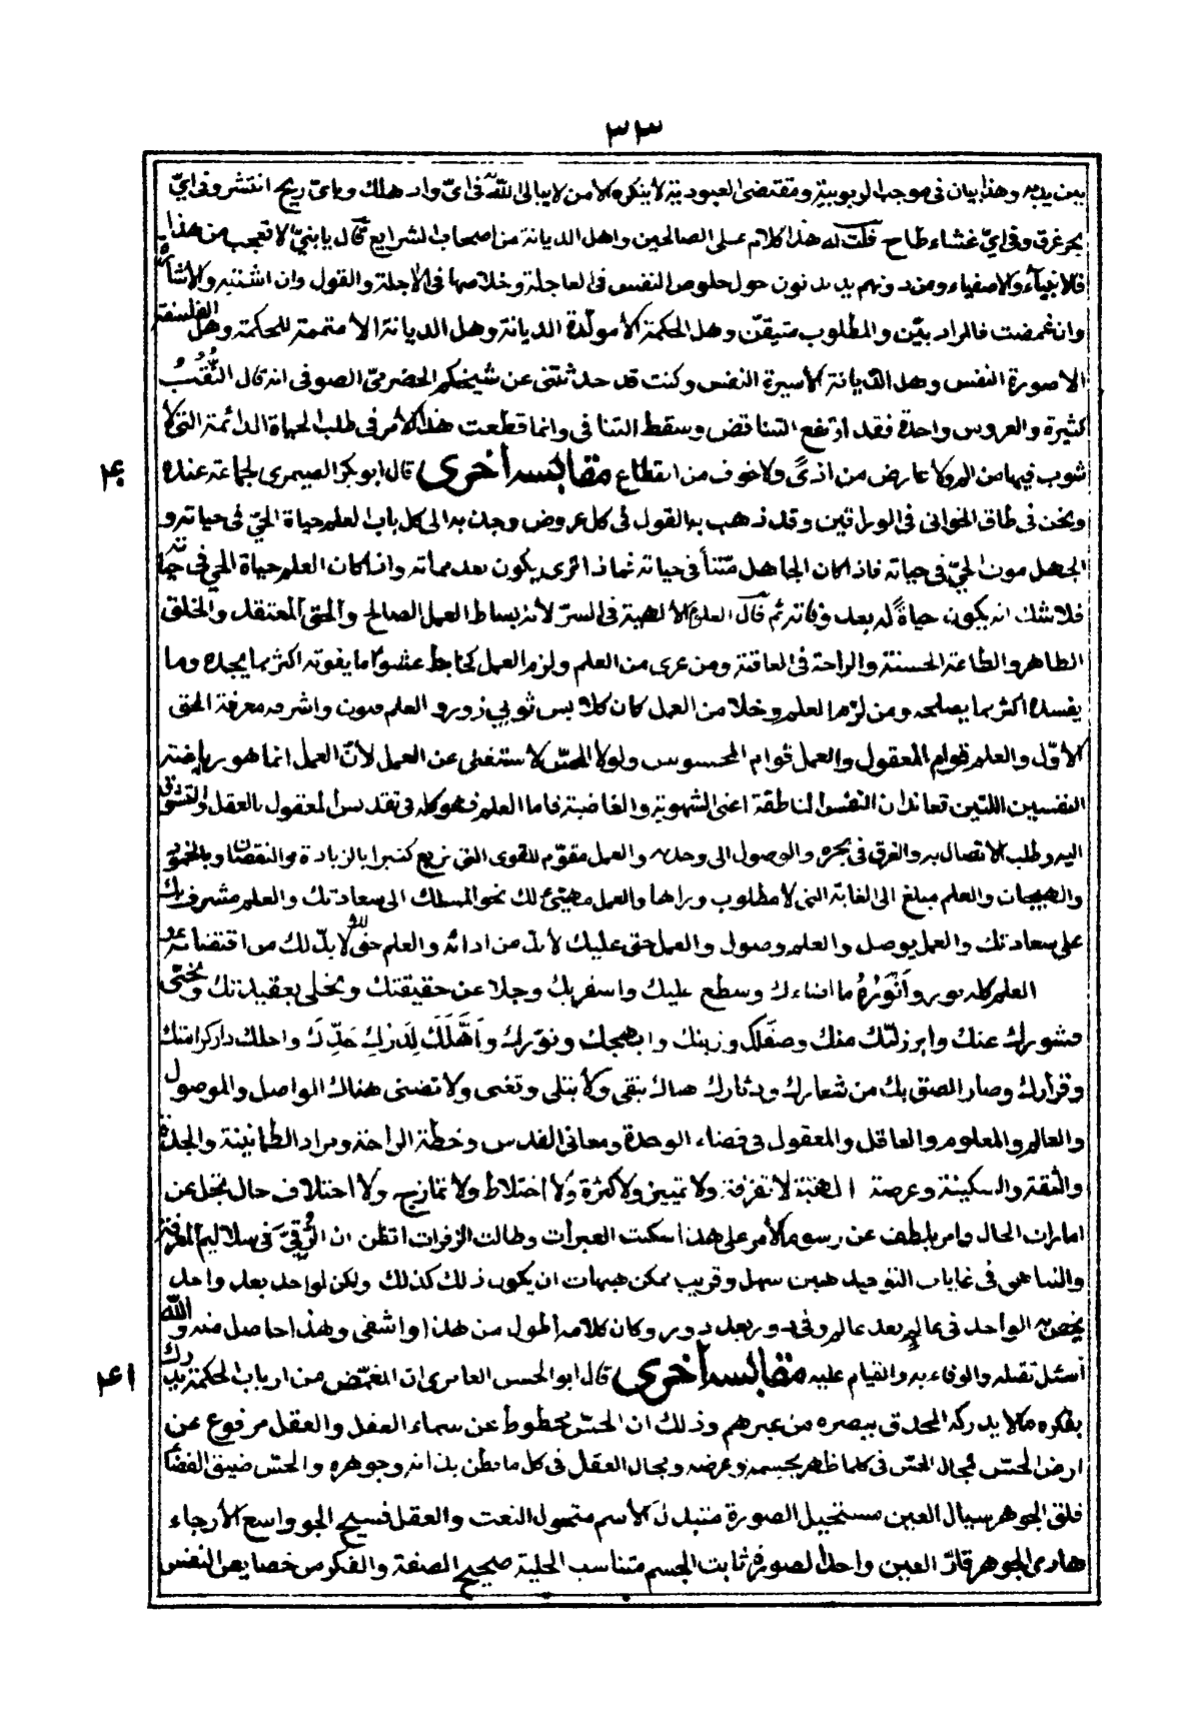 ٣٣
بين يديه وهذا بيان فى موجب الربوبية ومقتضى العبودية لا ينكره الا من لا يبالى الله فى اىّ واد هلك وباىّ ريح انتشر وفى اىّ
بحر غرق وفى اىّ غشاء طاح قلت له هذا كلام عـلى الصالحين واهل الديانة من اصحاب الشرايع قال يا بنىّ لا تعجب من هذا
فالانبياء والاصفياء ومن دونهم يدندنون حول خلوص النفس فى العاجلة وخلاصها فى الاجلة والقول وان اشتبه والاشأ
وان غمضت فالمراد بيّن والمطلوب متيقّن وهل الحكمة الا مولّدة الديانة وهل الديانة الا متممة للحكمة وهل الفلسفة
الا صورة النفس وهل الديانة الا سيرة النفس وكنت قد حدثتنى عن شيخكم الحضرمىّ الصوفى انه قال النُّقُبُ
كثيرة والعروس واحدة فقد ارتفع التناقض وسقط التنافى وانما قطعت هذا الأمر فى طلب الحياة الدائمة التى لا
شوب فيها من الم ولا عارض من اذىً ولا خوف من انقطاع مقابسة أخرى قال ابو بكر الصيمرى لجماعة عنده
٤٠
ونحن فى طاق الحوانى فى الوراقين وقد ذهب به القول فى كل عروض وجذبه الى كل باب العلم حياة الحىّ فى حياته و
الجهل موت الحىّ فى حياته فاذا كان الجاهل ميّتا فى حياته فما ذا ترى يكون بعد مماته واذا كان العلم حياة الحى فى حياته
فلا شك انه يكون حياةً له بعد وفاته ثم قال العلوم الالهية فى السرّ لأنه بساط العمل الصالح والحق المعتقد والخلق
الطاهر والطاعة الحسنة والراحة فى العاقبة ومن عرى من العلم ولزم العمل كخابط عشوا ما يفوته اكثر مما يجده وما
يفسده اكثر مما يصلحه ومن لزم العلم وخلا من العمل كان كلابس ثوبى زور و العلم فنون واشرفه معرفة الحق
الأوّل والعلم قوام المعقول والعمل قوام المحسوس ولولا الحسّ لاستغنى عن العمل لأنّ العمل انما هو رياضة
النفسين اللتين تعاندان النفس الناطقة اعنى الشهوية والغاضبة فاما العلم فهو كله فى تقديس المعقول بالعقل والتشوق
اليه وطلب الاتصال به والغرق فى بحره والوصول الى وحدته والعمل مقوّم للقوى التى تزيغ كثيرا بالزيادة والنقصان وبالخمود
والهيجان والعلم مبلغ الى الغاية التى لا مطلوب وراها والعمل مهيّئ لك نحو المسلك الى سعادتك والعلم مشرف بك
على سعادتك والعمل يوصل والعلم وصول والعمل حق عليك لا بدّ من ادائه والعلم حق لك لا بدّ لك من اقتضائه
العلم كله نور وأنوَرُهُ ما اضاءك وسطع عليك واسفر بك وجلا عن حقيقتك وتخلى بعقيدتك ونحّى
قشورك عنك وابرز لبّك منك وصفّاك وزينك وابهجك ونوّرك وأهَّلَكَ لِدَرْكِ حَدِّكَ واحلك دار كرامتك
وقرارك وصار الصق بك من شعارك ودثارك هناك تبقى ولا تبلى وتغنى ولا تضنى هناك الواصل والموصول
والعالم والمعلوم والعاقل والمعقول فى فضاء الوحدة ومعانى القدس وخطة الراحة ومراد الطمانينة والجدة
والثقة والسكينة وعرصة الهيّة لا تفرقة ولا تمييز ولا كثرة ولا اختلاط ولا تمازج ولا اختلاف حال تجل عن
امارات الحال وامر يلطف عن رسوم الأمر على هذا سكبت العبرات وطالت الزفرات اتظن ان الرُّقِىَّ فى سلاليم المعرفة
والتناهى فى غايات التوحيد هين سهل وقريب ممكن هيهات ان يكون ذلك كذلك ولكن لواحد بعد واحد
يخص به الواحد فى عالم بعد عالم وفى دور بعد دور وكان كلامه اطول من هذا واشفى وهذا حاصل منه والله
أسئل تقبله والوفاء به والقيام عليه مقابسة أخرى قال ابو الحسن العامرى ان المغمّض من ارباب الحكمة يدرك
٤١
بفكره ما لا يدركه المحدق ببصره من غيرهم وذلك ان الحسّ محطوط عن سماء العقل والعقل مرفوع عن
ارض الحسّ فمجال الحسّ فى كلما ظهر بجسمه وعرضه ومجال العقل فى كل ما بطن بذاته وجوهره والحسّ ضيق الفضأ
قلق الجوهر سيال العين مستحيل الصورة متبدل الأسم متحول النعت والعقل فسيح الجو واسع الأرجاء
هادى الجوهر قارّ العين واحد الصورة ثابت الجسم متناسب الحلية صحيح الصفة والفكر من خصايص النفس